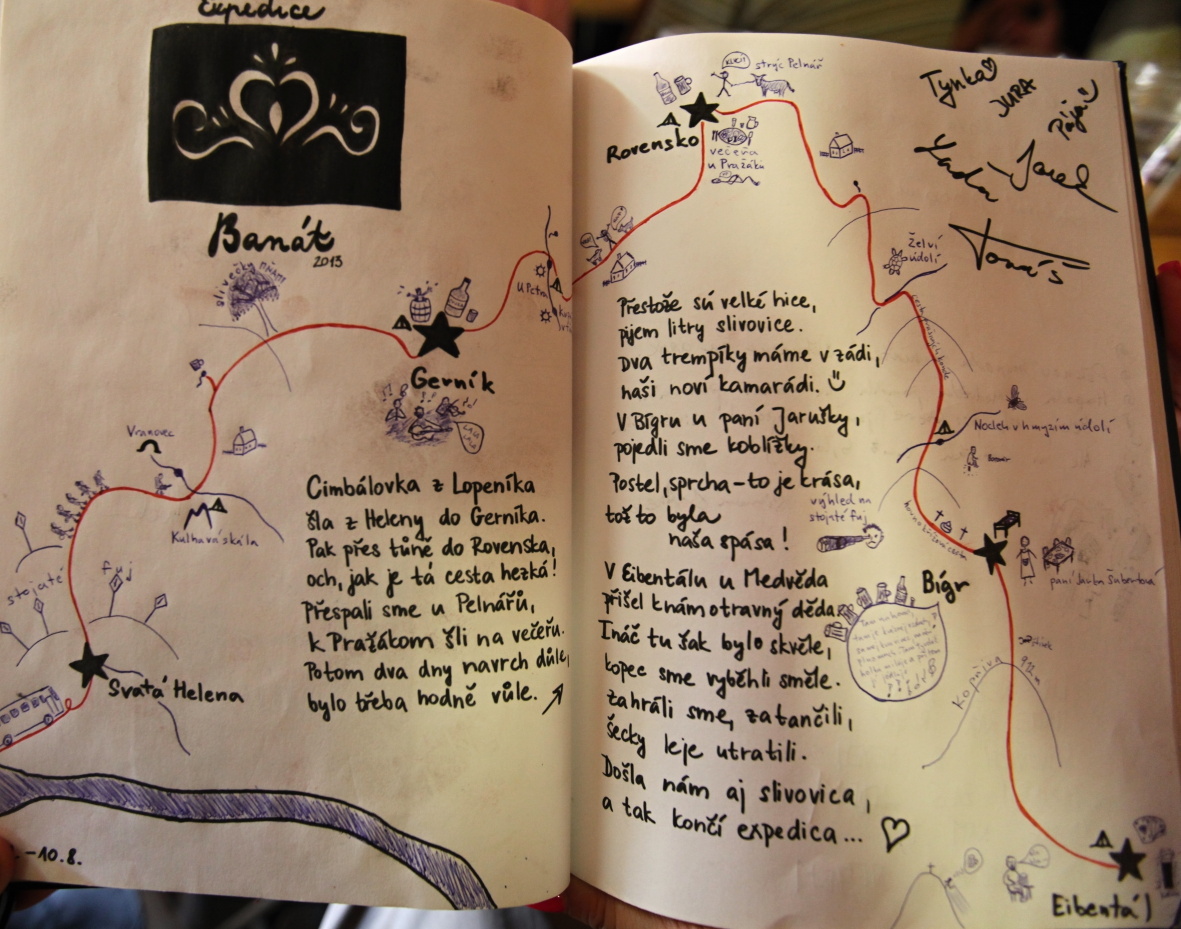 Expedice
Banát
2013
slivečky mňam!
Gerník
U Petra
Vranovec
Kulhavá skála
stojaté
fuj
Svatá Helena
Cimbálovka z Lopeníka
šla z Heleny do Gerníka.
Pak přes túně do Rovenska,
och, jak je tá cesta hezká!
Přespali sme u Pelnářů,
k Pražákom šli na večeřu.
Potom dva dny navrch důle,
bylo třeba hodně vůle.
–10.8.
KLIC!!
strýc Pelnář
Rovensko
večeřa
u Pražáků
Týnka
JURA
Pája
Lada
Jarek
Tomáš
Želví
údolí
Přestože sú velké hice,
pijem litry slivovice.
Dva trempíky máme v zádi,
naši noví kamarádi.
V Bígru u paní Jarušky,
pojedli sme koblížky.
Postel, sprcha – to je krása,
tož to byla
naša spása!
V Eibentálu u Medvěda
přišel k nám otravný děda.
Ináč tu šak bylo skvěle,
kopec sme vyběhli směle.
Zahráli sme, zatančili,
šecky leje utratili.
Došla nám aj slivovica,
a tak končí expedica...
Nocleh v hmyzím údolí
výhled na
stojaté fuj
Bígr
paní
Kopřiva
912m
Eibentál